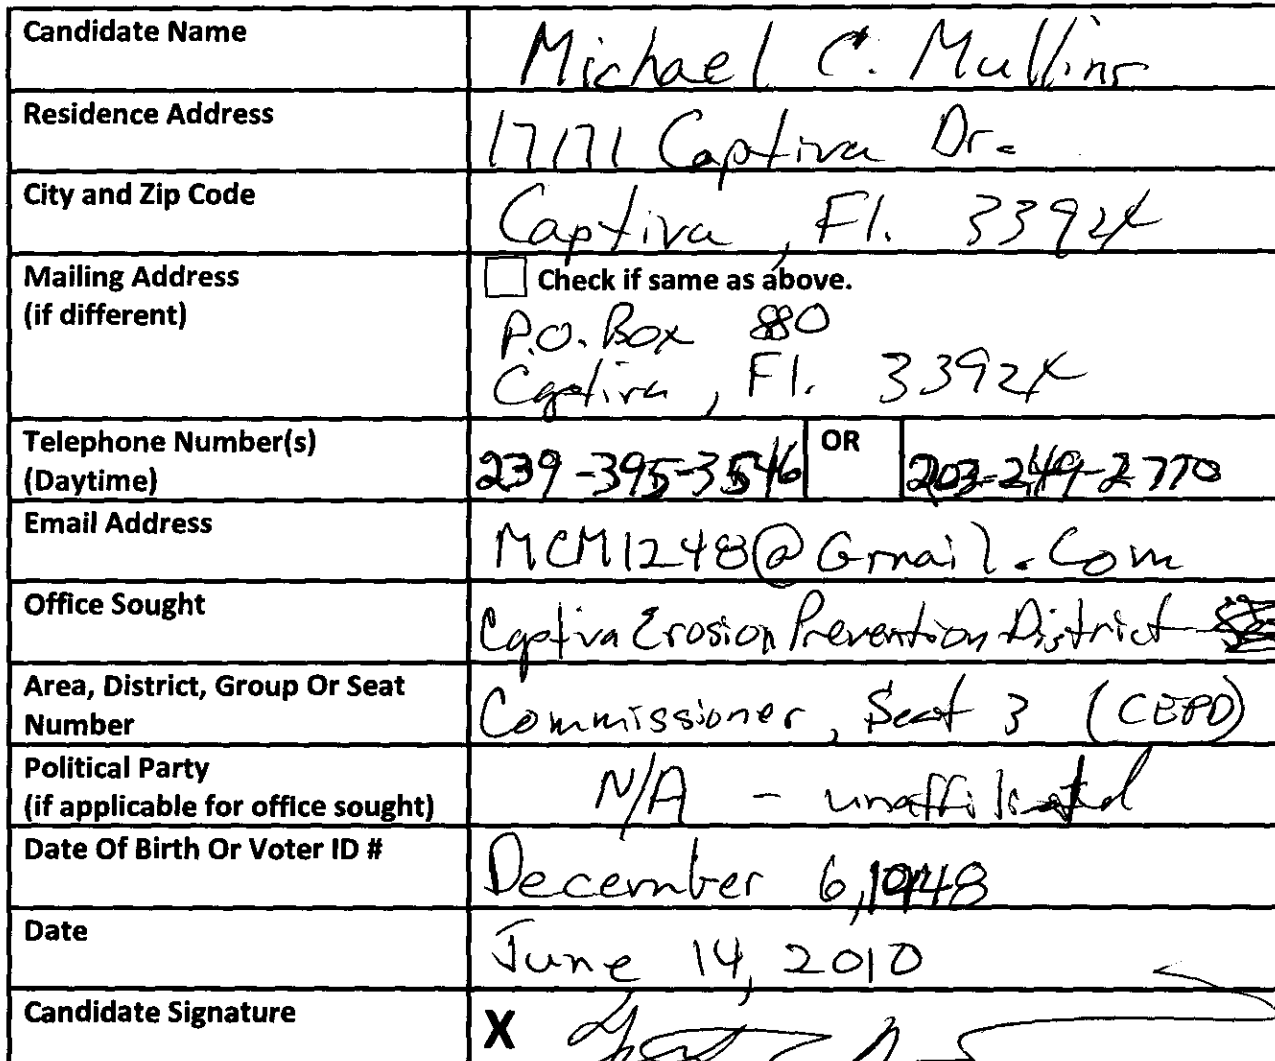 Candidate Name Michael C. Mullins
Residence Address 17171 Captiva Dr.
City and Zip Code Captiva, Fl. 33924
Mailing Address
(if different)
Check if same as above.
P.O. Box 880
Captiva, Fl. 33924
Telephone Number(s)
(Daytime)
239-395-3546 OR 203-249-2770
Email Address MCM1248@Gmail.Com
Office Sought Captiva Erosion Prevention District
Area, District, Group Or Seat
Number
Commissioner, Seat 3 (CEPD)
Political Party
(if applicable for office sought)
N/A - unaffiliated
Date Of Birth Or Voter ID # December 6, 1948
Date June 14, 2010
Candidate Signature X